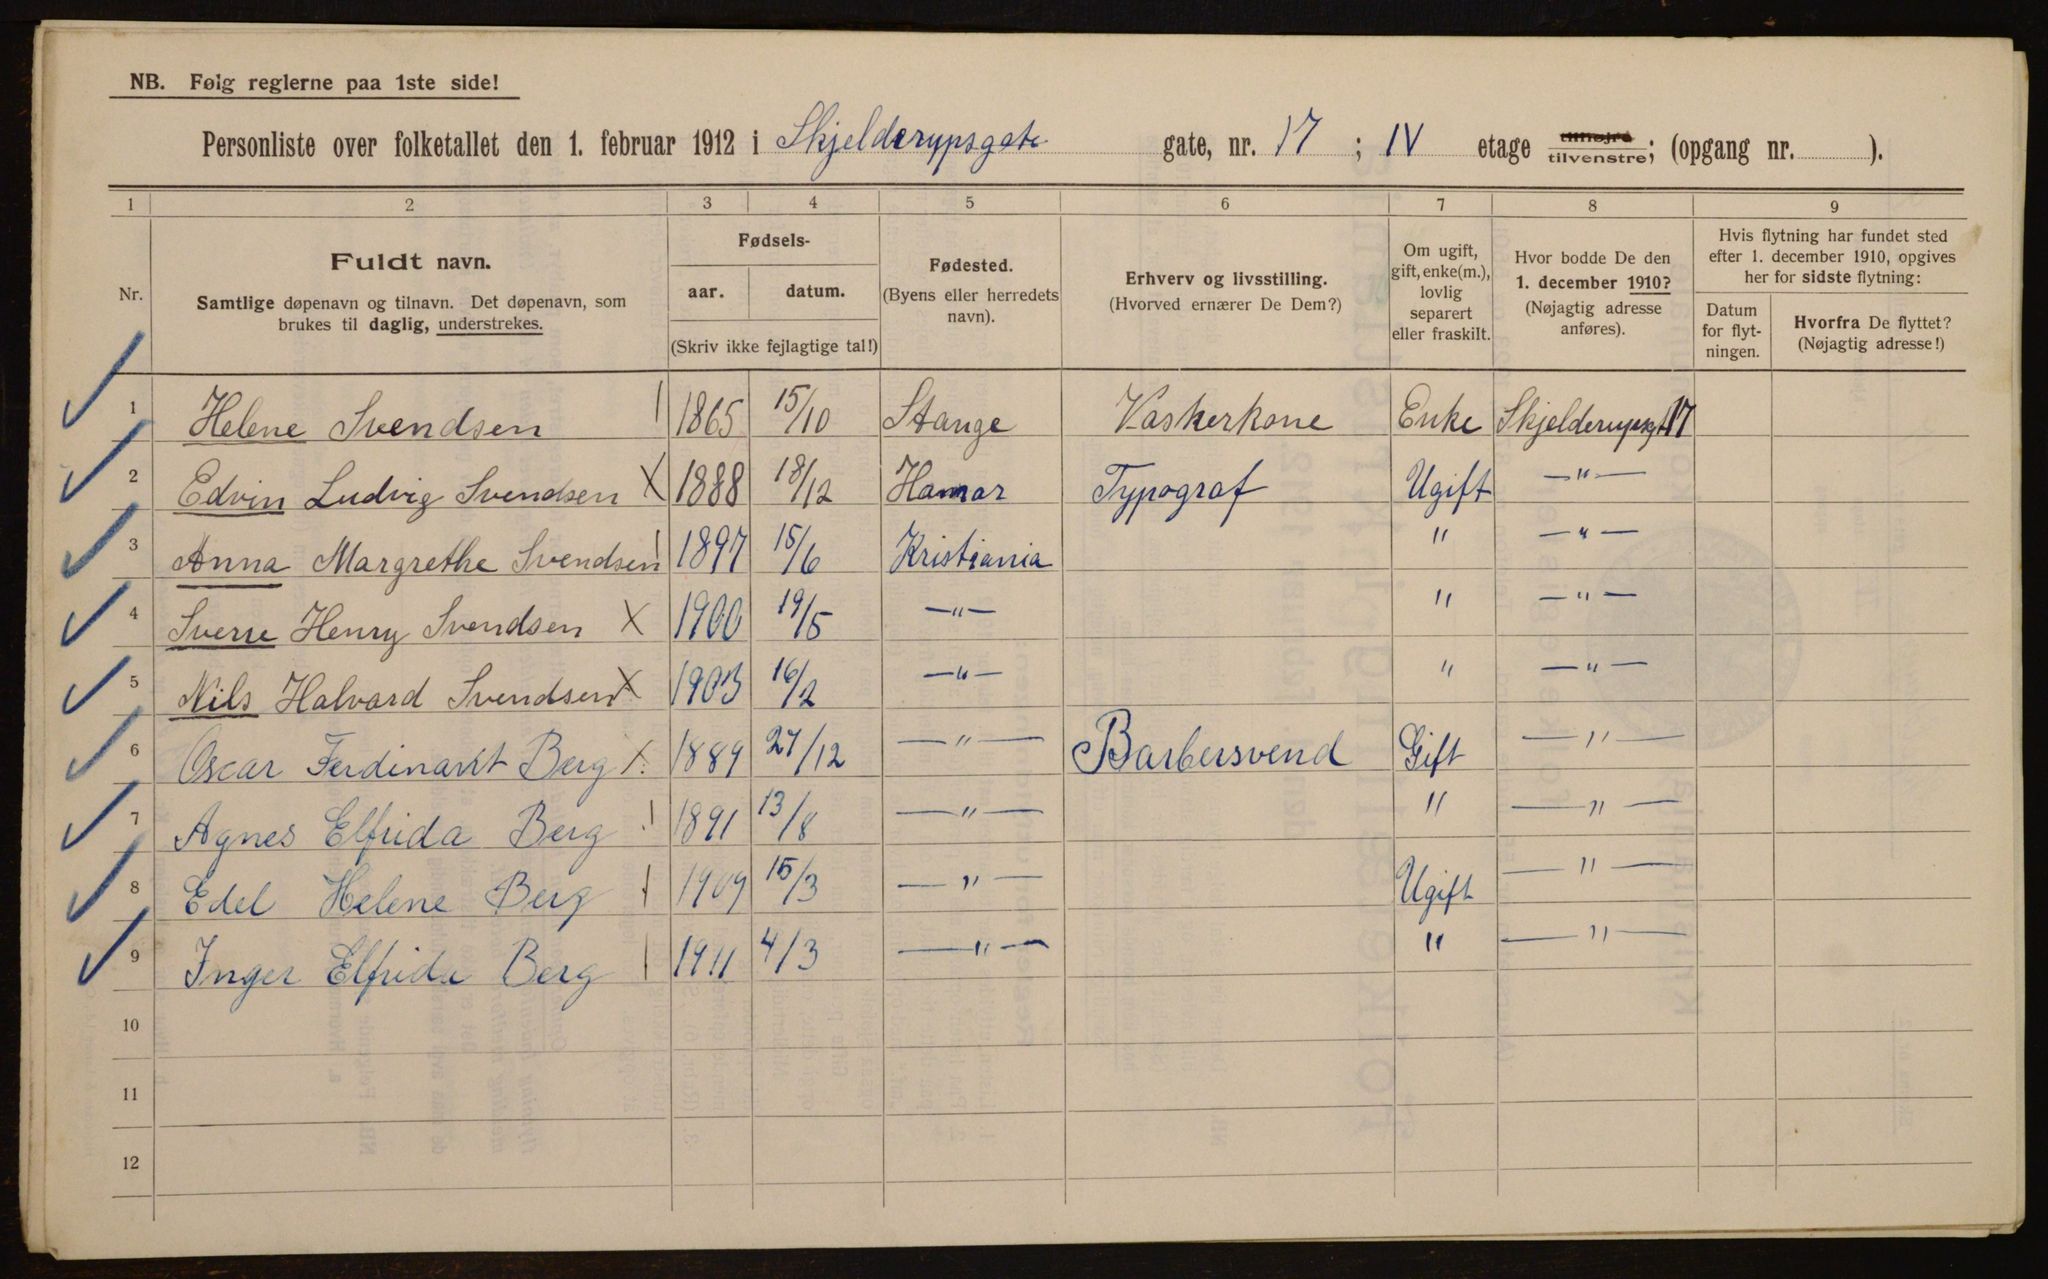 NB. Følg reglerne paa 1ste side!
Personliste over folketallet den 1. februar 1912 i Skjelderupsgate gate, nr. 17 ; IV etage tilhøjre tilvenstre; (opgang nr. ).
1 2 3 4 5 6 7 8 9
Nr.
Fuldt navn.
Samtlige døpenavn og tilnavn. Det døpenavn, som
brukes til daglig, understrekes.
Fødsels-
aar. datum.
(Skriv ikke fejlagtige tal!)
Fødested.
(Byens eller herredets
navn).
Erhverv og livsstilling.
(Hvorved ernærer De Dem?)
Om ugift,
gift, enke(m.),
lovlig
separert
eller fraskilt.
Hvor bodde De den
1. december 1910?
(Nøjagtig adresse
anføres).
Hvis flytning har fundet sted
efter 1. december 1910, opgives
her for sidste flytning:
Datum
for flyt-
ningen.
Hvorfra De flyttet?
(Nøjagtig adresse!)
1 Helene Svendsen 1865 15/10 Stange Vaskerkone Enke Skjelderupsgt 17
2 Edvin Ludvig Svendsen X 1888 18/12 Hamar Typograf Ugift —"—
3 Anna Margrethe Svendsen 1897 15/6 Kristiania " —"—
4 Sverre Henry Svendsen X 1900 19/5 —"— " —"—
5 Nils Halvard Svendsen X 1903 16/2 —"— " —"—
6 Oscar Ferdinant Berg X 1889 27/12 —"— Barbersvend Gift —"—
7 Agnes Elfrida Berg 1891 13/8 —"— " —"—
8 Edel Helene Berg 1909 15/3 —"— Ugift —"—
9 Inger Elfrida Berg 1911 4/3 —"— " —"—
10
11
12